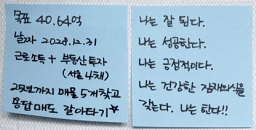 목표 40.64억
날짜 2028.12.31
근로소득 + 부동산 투자
(서울 4채)
25년까지 매물 5개 찾고
몽땅 매도 갈아타기☆
나는 잘 된다.
나는 성공한다.
나는 긍정적이다.
나는 건강한 자제의식을
갖는다. 나는 탄다!!